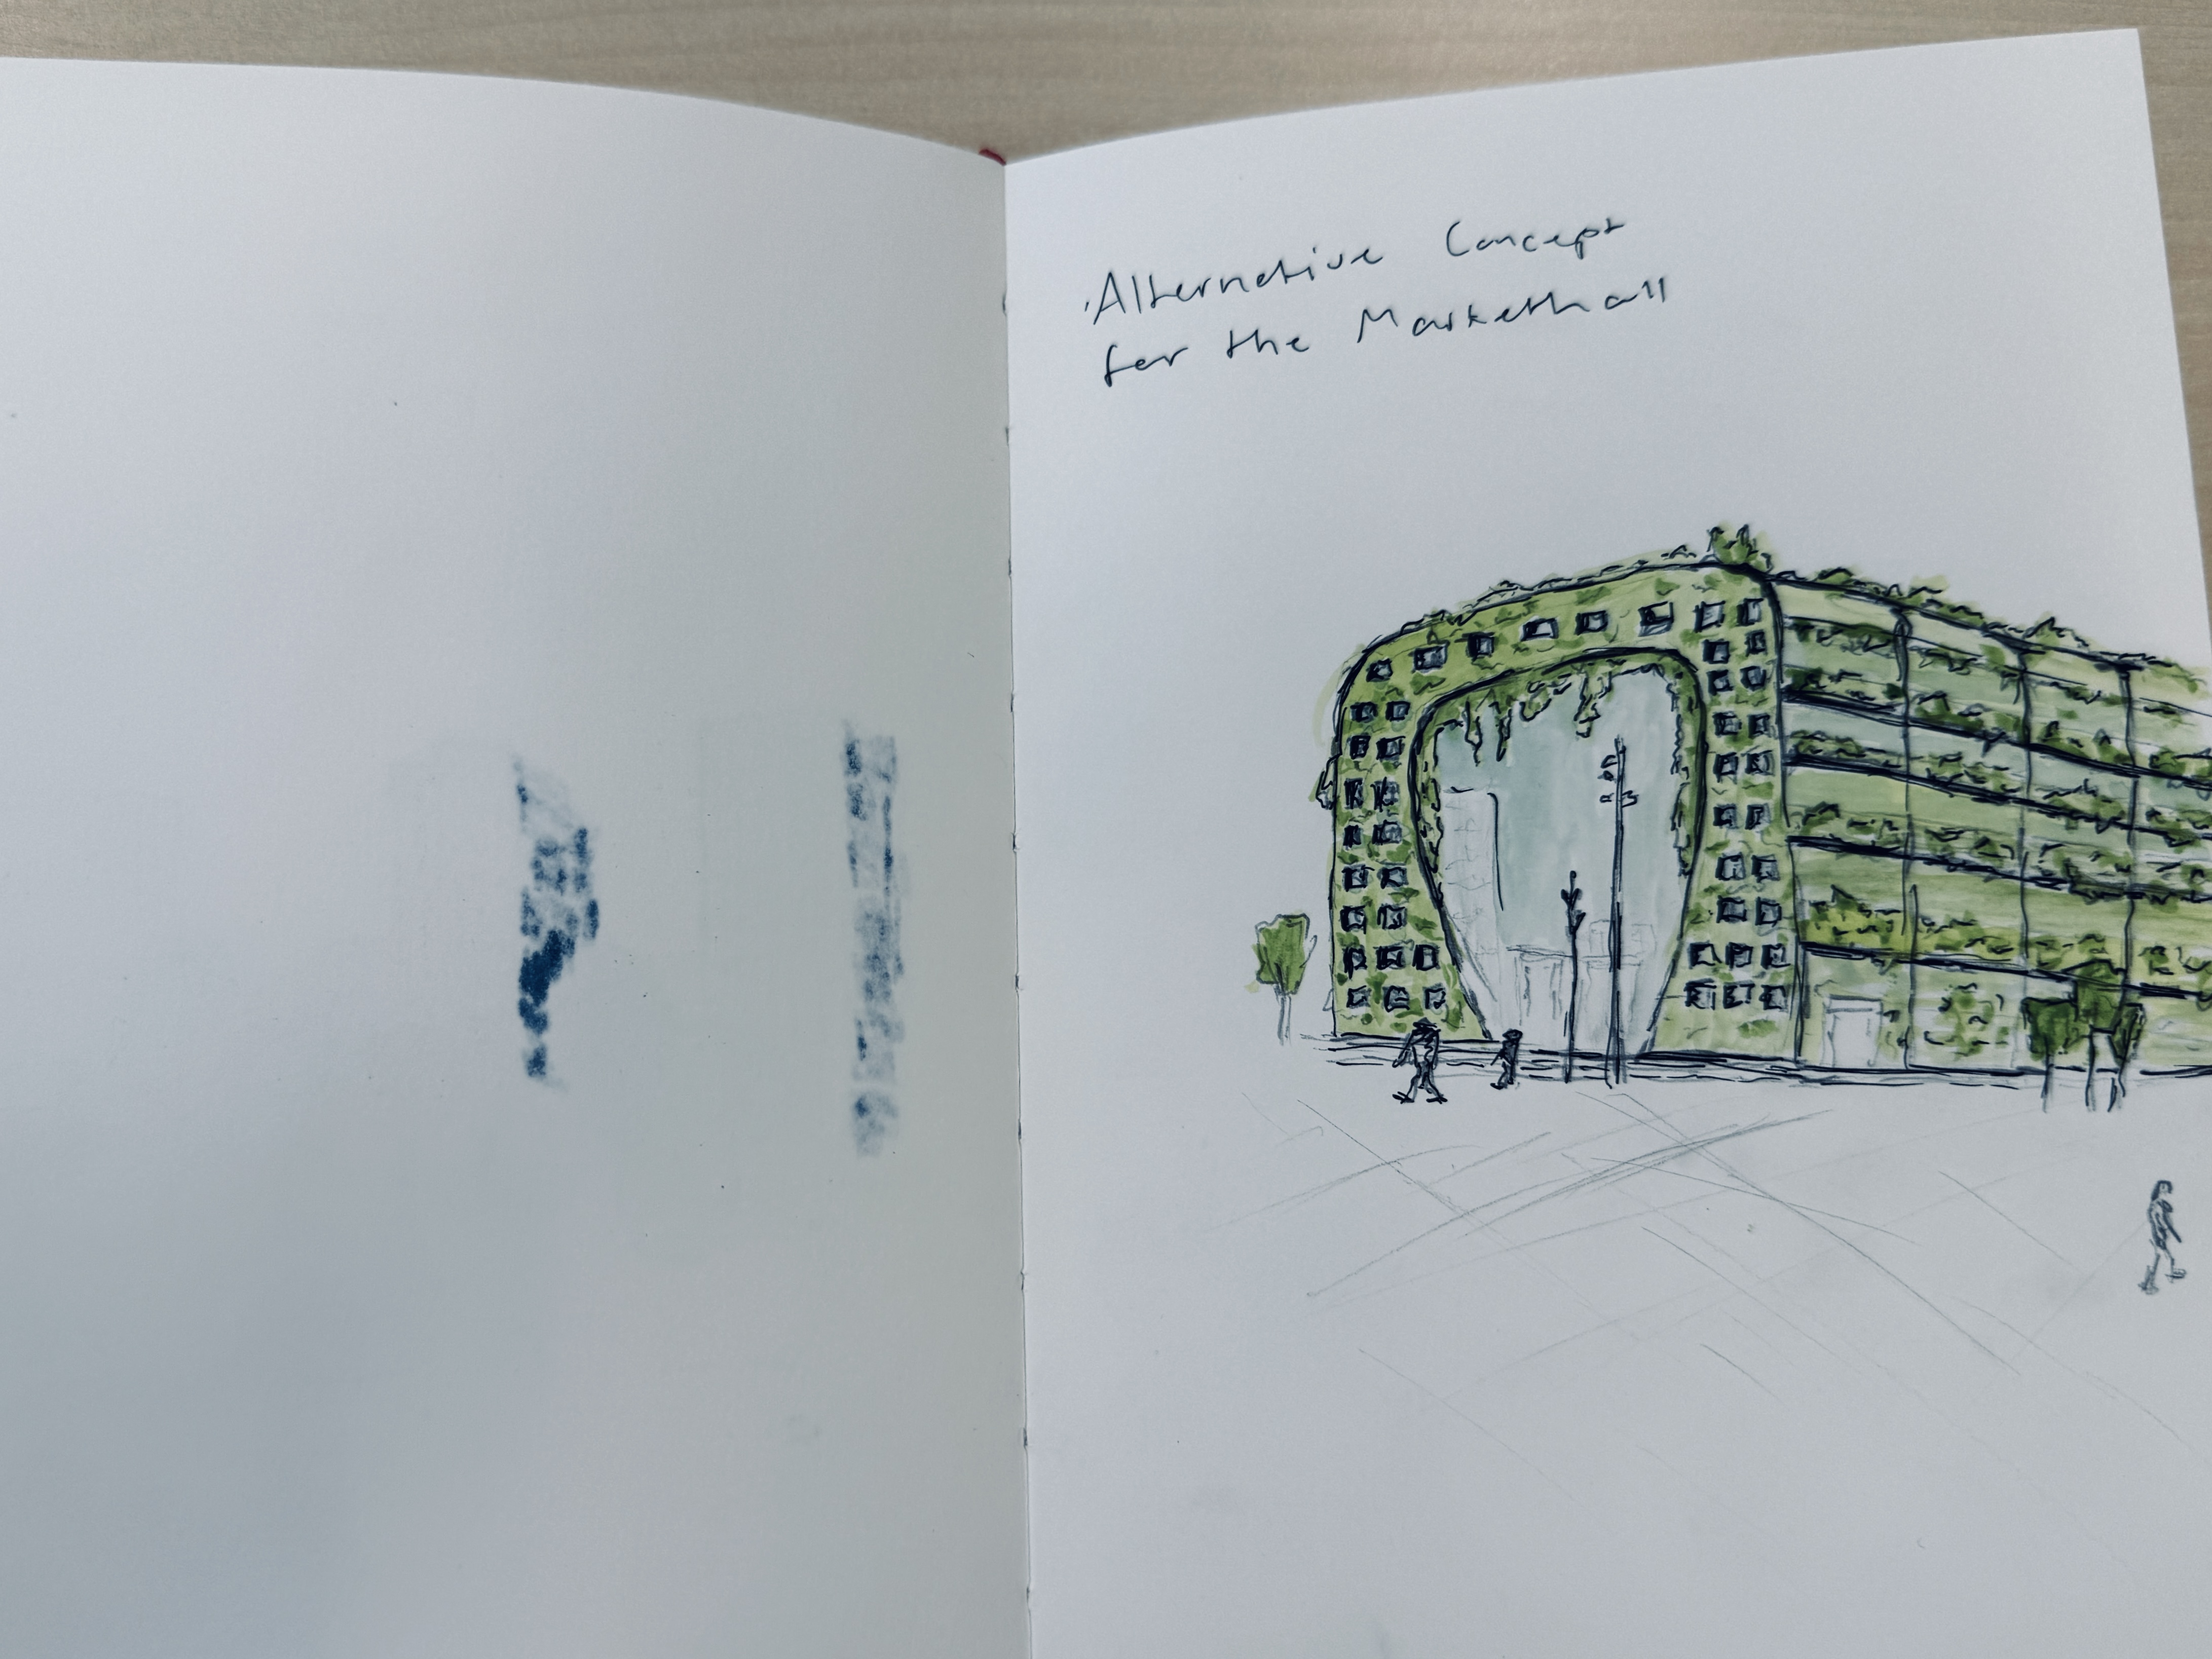 Alternative Concept
for the Markethall